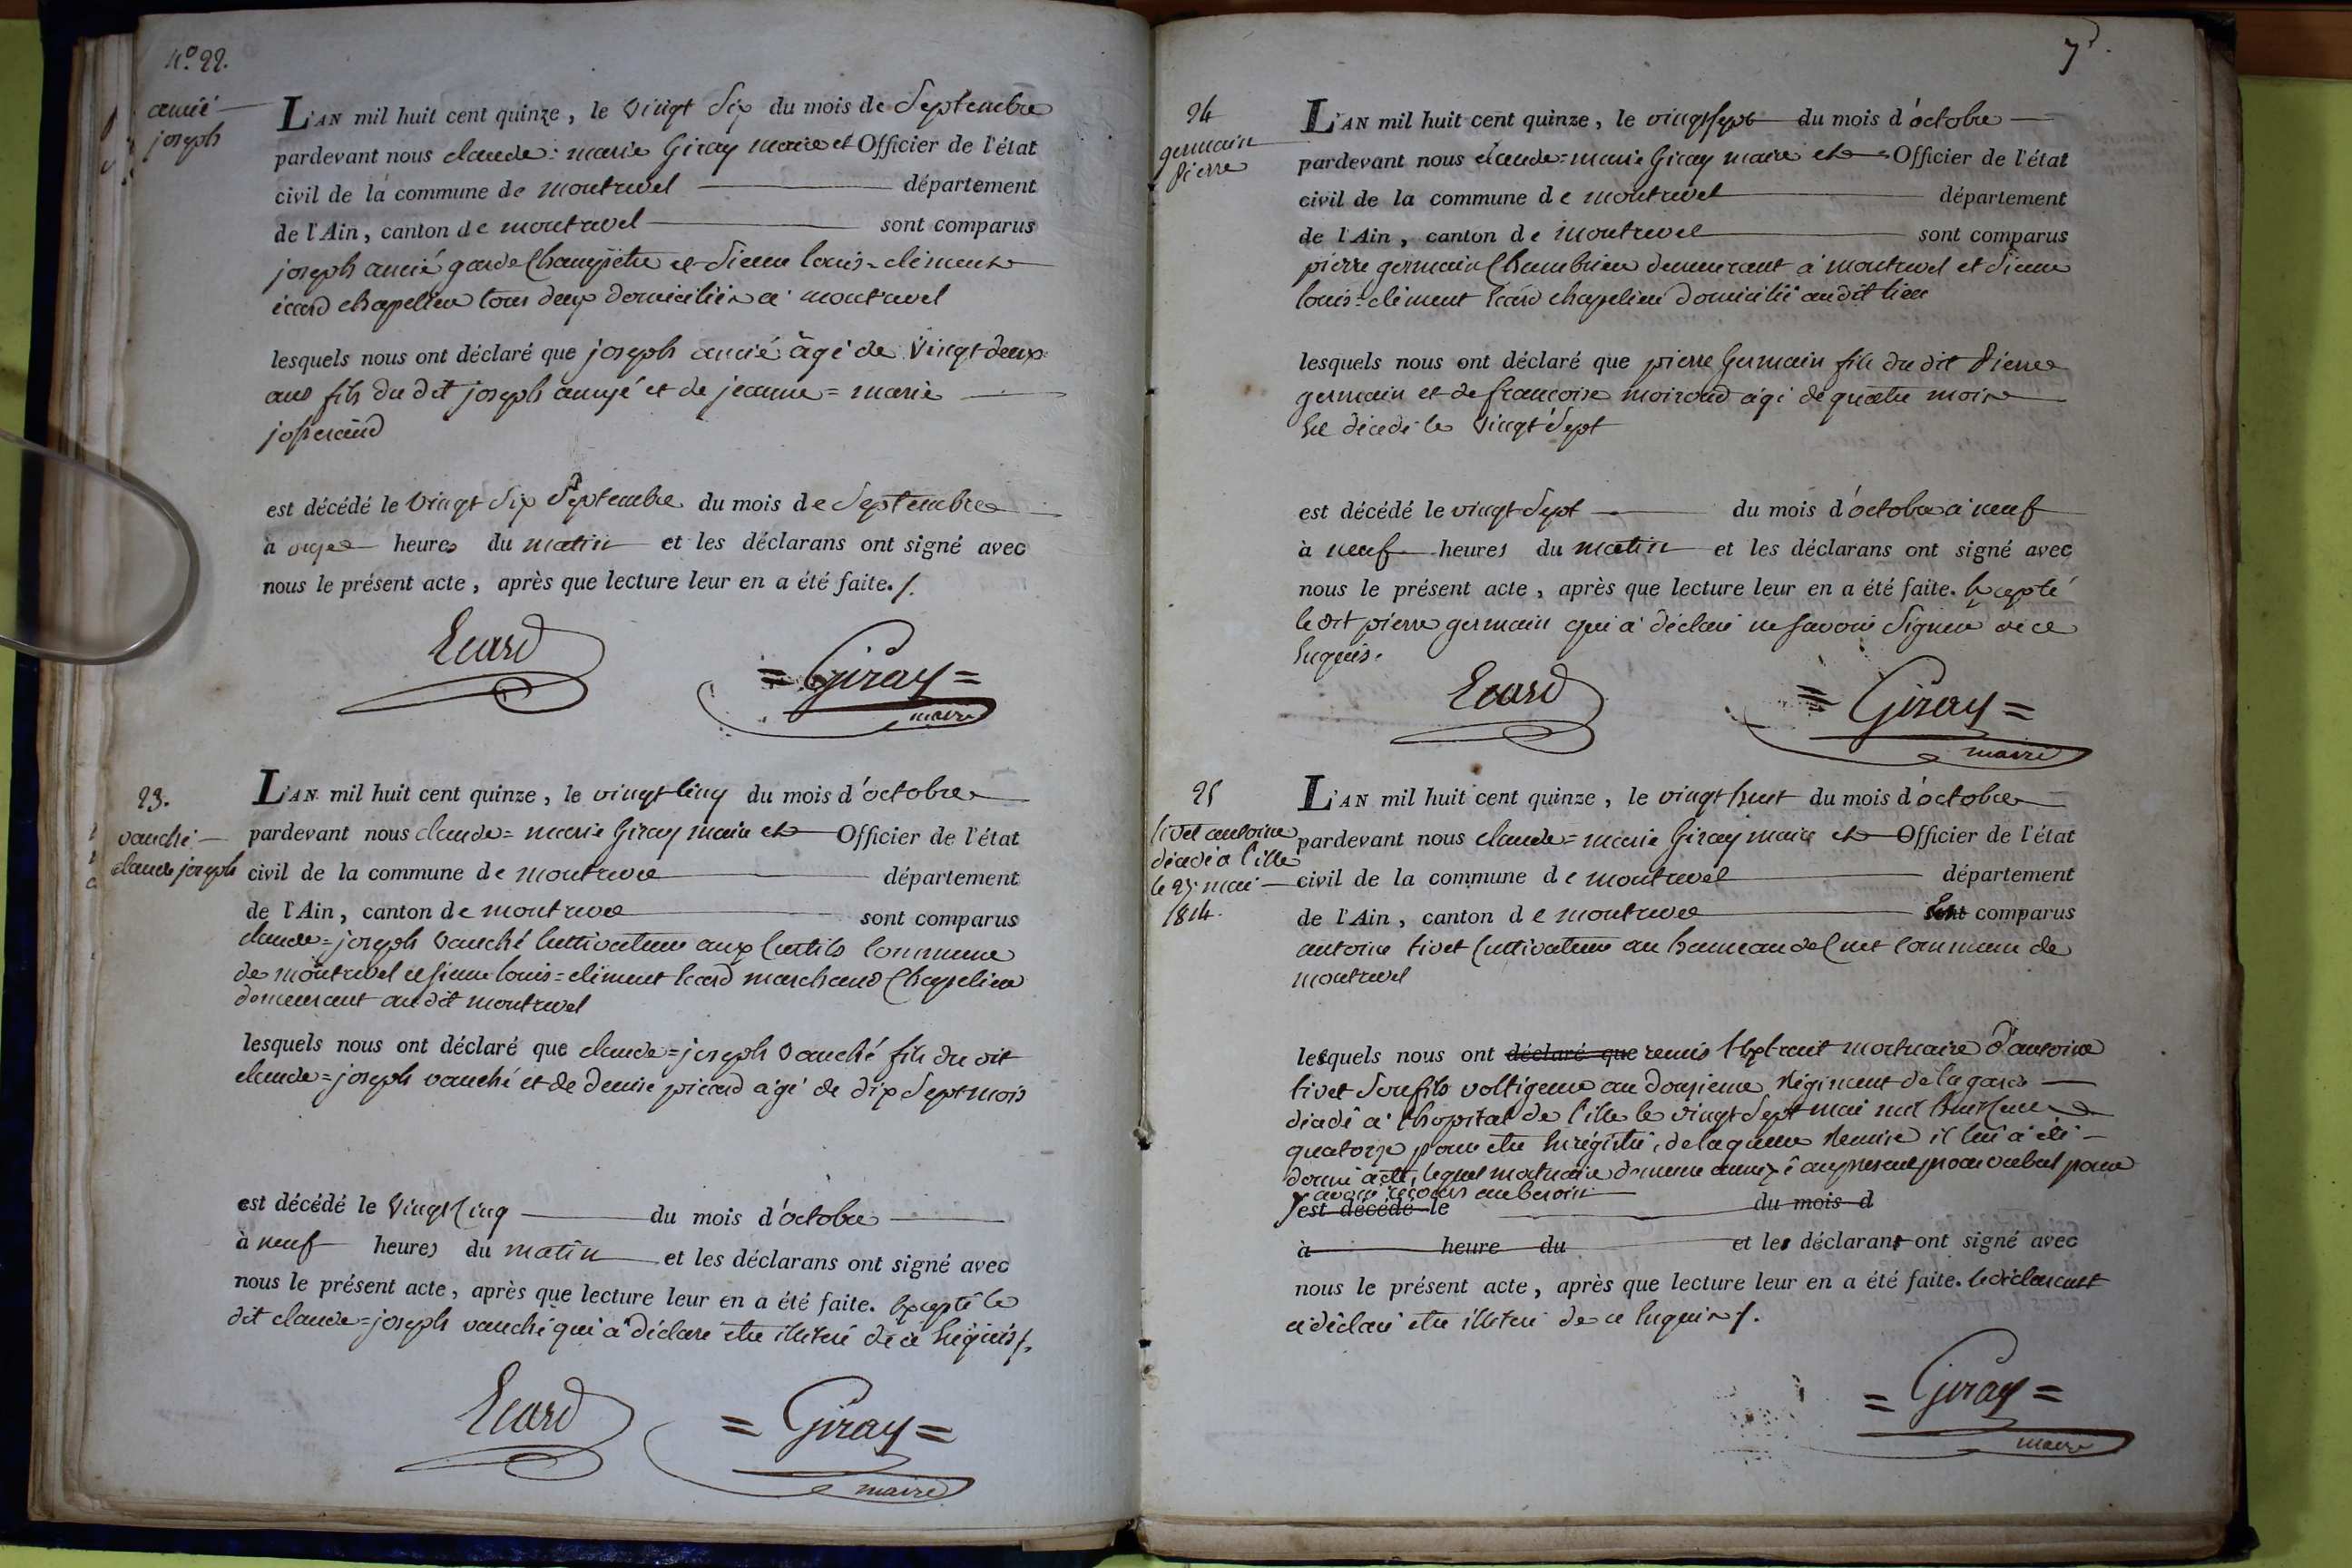 N.° 22.
amié
joseph
L'AN mil huit cent quinze, le vingt six du mois de Septembre
pardevant nous claude = marie Giray maire et Officier de l'état
civil de la commune de montrevel département
de l'Ain, canton de montrevel sont comparus
joseph amié garde Champêtre et Sieur louis = clément
écard chapelier tous deux domiciliés à montrevel
lesquels nous ont déclaré que joseph amié âgé de vingt deux
ans fils du dit joseph amyé et de jeanne = marie
josserand
est décédé le vingt Six Septembre du mois de Septembre
à onze heures du matin et les déclarans ont signé avec
nous le présent acte, après que lecture leur en a été faite./.
Ecard = Giray =
maire
23.
vauché
claude joseph
L'AN mil huit cent quinze, le vingt Cinq du mois d'octobre
pardevant nous claude = marie Giray maire et Officier de l'état
civil de la commune de montrevel département
de l'Ain, canton de montrevel sont comparus
claude = joseph vauché Cultivateur aux Curtils Commune
de montrevel et sieur louis = clément Ecard marchand Chapelier
demeurant au dit montrevel
lesquels nous ont déclaré que claude = joseph vauché fils du dit
claude = joseph vauché et de denise picard âgé de dix Sept mois
est décédé le vingt Cinq du mois d'octobre
à neuf heures du matin et les déclarans ont signé avec
nous le présent acte, après que lecture leur en a été faite. Excepté le
dit claude = joseph vauché qui a déclaré être illitéré de ce Enquis/.
Ecard = Giray =
maire
7
24
germain
Pierre
L'AN mil huit cent quinze, le vingt sept du mois d'octobre
pardevant nous claude = marie Giray maire et Officier de l'état
civil de la commune de montrevel département
de l'Ain, canton de montrevel sont comparus
pierre germain demeurant à montrevel et Sieur
louis = clément Ecard chapelier domicilié audit lieu
lesquels nous ont déclaré que pierre Germain fils du dit Pierre
germain et de françoise moiroud âgé de quatre mois
Est décédé le vingt Sept
est décédé le vingt Sept du mois d'octobre à neuf
à neuf heures du matin et les déclarans ont signé avec
nous le présent acte, après que lecture leur en a été faite. Excepté
le dit pierre germain qui a déclaré ne savoir Signer de ce
Enquis.
Ecard = Giray =
maire
25
tivet antoine
décédé à l'ille
le 27 mai
1814.
L'AN mil huit cent quinze, le vingt huit du mois d'octobre
pardevant nous claude = marie Giray maire et Officier de l'état
civil de la commune de montrevel département
de l'Ain, canton de montrevel comparus
antoine tivet Cultivateur au hameau de Cuet commune de
montrevel
lesquels nous ont déclaré que remis l'Extrait mortuaire d'antoine
tivet Son fils voltigeur au douzieme Régiment de la garde
décédé à l'hopital de l'ille le vingt Sept mai mil huit Cent
quatorze pour être Enrégistré, de laquelle Remise il lui a été
donné acte, lequel mortuaire demeure annexé au présent procès verbal pour
y avoir recours au besoin
est décédé le du mois d
à heure du et les déclarans ont signé avec
nous le présent acte, après que lecture leur en a été faite. le déclarant
a déclaré être illitéré de ce Enquis/.
= Giray =
maire